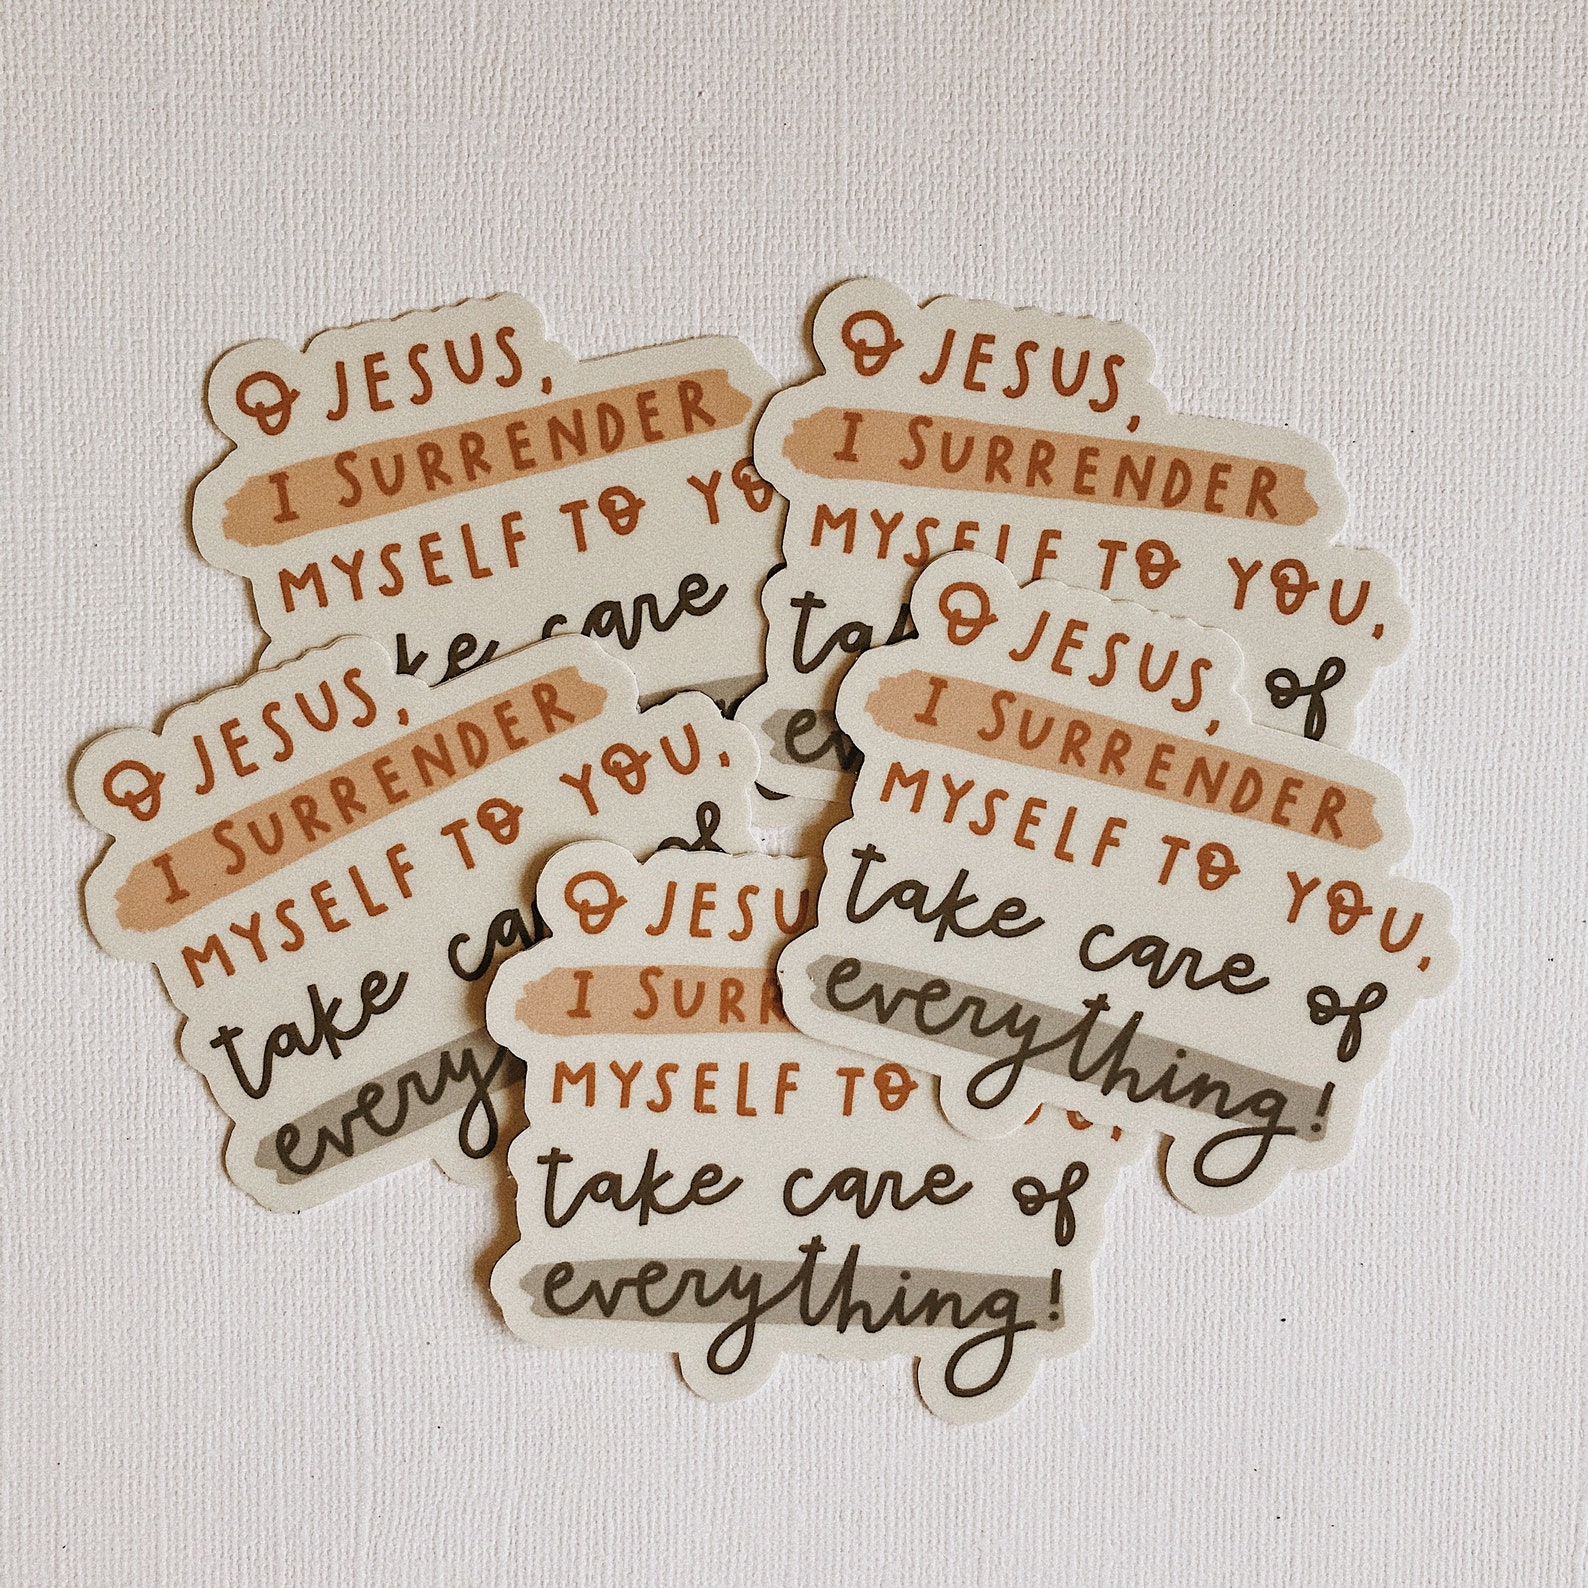 O JESUS,
I SURRENDER
MYSELF TO YO
ke care
O JESUS,
I SURRENDER
MYSELF TO YOU,
ta of
ev
O JESUS,
I SURRENDER
MYSELF TO YOU,
take ca of
every
O JESUS,
I SURRENDER
MYSELF TO YOU,
take care of
everything!
O JESU
I SURR
MYSELF TO OU,
take care of
everything!